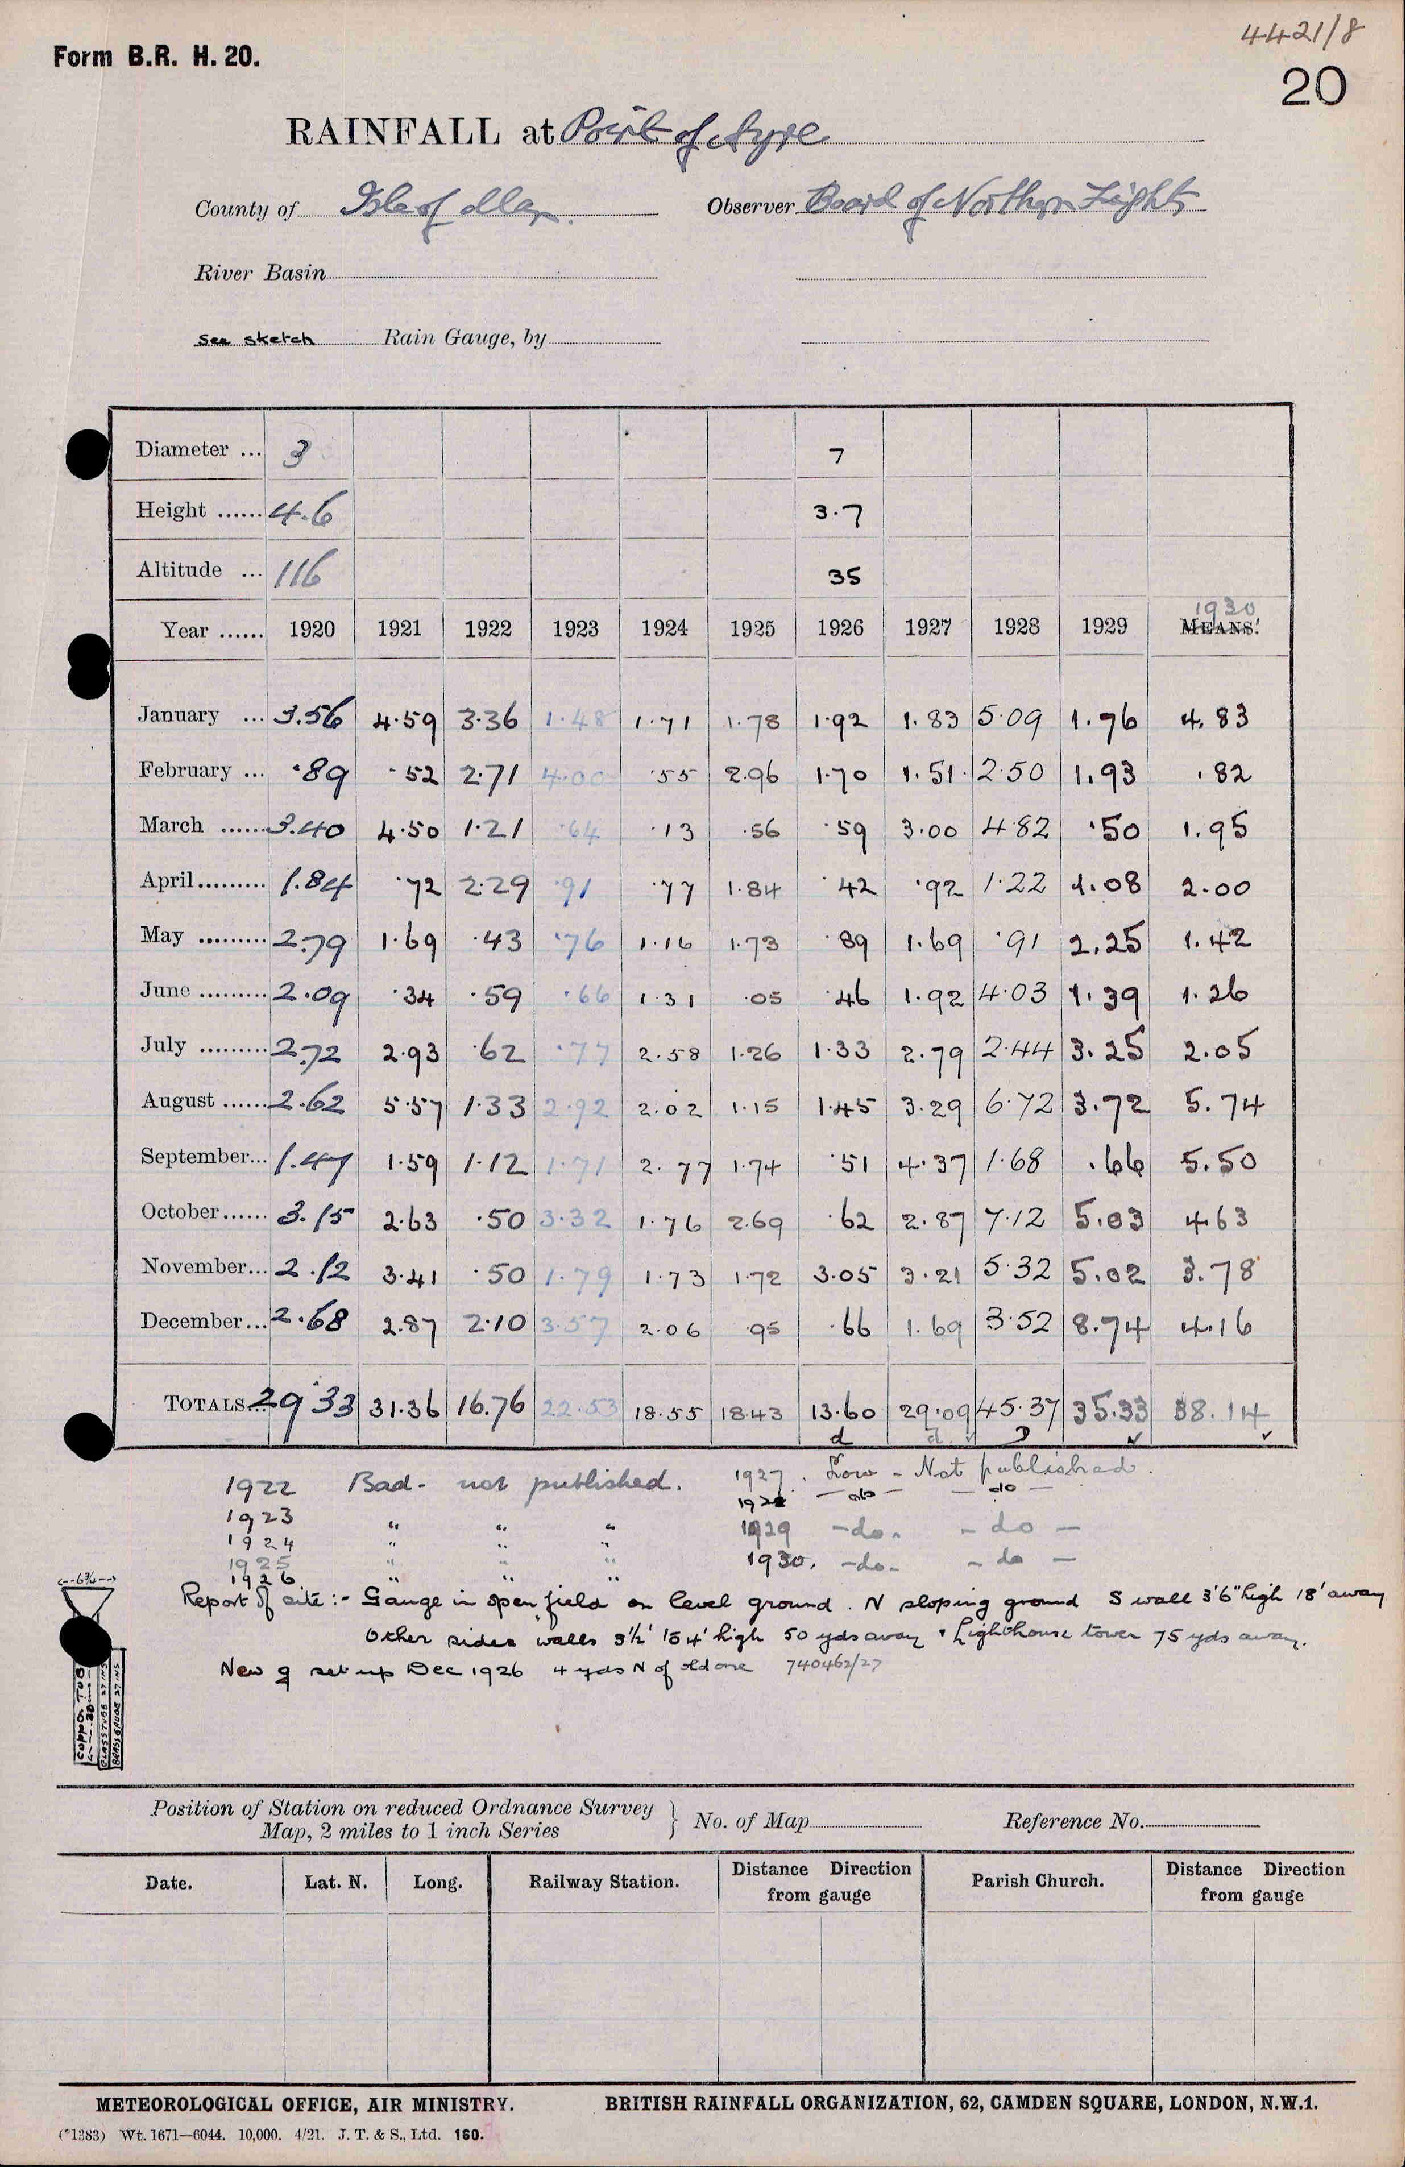 4421/8
Form B.R. H. 20.
20
RAINFALL at Point of Ayre
County of Isle of Man. Observer Board of Northern Lights
River Basin
See sketch Rain Gauge, by
Diameter ... 3 7
Height ...... 4.6 3.7
Altitude ... 116 35
1930
Year ...... 1920 1921 1922 1923 1924 1925 1926 1927 1928 1929 MEANS.
January ... 3.56 4.59 3.36 1.48 1.71 1.78 1.92 1.83 5.09 1.76 4.83
February ... .89 .52 2.71 4.00 .55 2.96 1.70 1.51 2.50 1.93 .82
March ...... 3.40 4.50 1.21 .64 .13 .56 .59 3.00 4.82 .50 1.95
April ......... 1.84 .72 2.29 .91 .77 1.84 .42 .92 1.22 1.08 2.00
May ......... 2.79 1.69 .43 .76 1.16 1.73 .89 1.69 .91 2.25 1.42
June ......... 2.09 .34 .59 .66 1.31 .05 .46 1.92 4.03 1.39 1.26
July ......... 2.72 2.93 .62 .77 2.58 1.26 1.33 2.79 2.44 3.25 2.05
August ...... 2.62 5.57 1.33 2.92 2.02 1.15 1.45 3.29 6.72 3.72 5.74
September... 1.47 1.59 1.12 1.71 2.77 1.74 .51 4.37 1.68 .66 5.50
October...... 3.15 2.63 .50 3.32 1.76 2.69 .62 2.87 7.12 5.03 4.63
November... 2.12 3.41 .50 1.79 1.73 1.72 3.05 3.21 5.32 5.02 3.78
December... 2.68 2.87 2.10 3.57 2.06 .95 .66 1.69 3.52 8.74 4.16
TOTALS... 29.33 31.36 16.76 22.53 18.55 18.43 13.60 29.09 45.37 35.33 38.14
d d ✓ D ✓ ✓
1922 Bad - not published. 1927. Low - Not published.
1928 - do - - do -
1923 " " "
1929 - do. - do -
1924 " " "
1930. - do - - do -
1925 " " "
1926 " " "
6¾
Report of site :- Gauge in open field on level ground. N sloping ground S wall 3'6" high 18' away
Other sides walls 3½' to 4' high 50 yds away & Lighthouse tower 75 yds away.
New g set up Dec 1926 4 yds N of old one 740462/27
COPPER TUBE
GLASS TUBE 27 INS
BRASS GAUGE 27 INS
Position of Station on reduced Ordnance Survey
Map, 2 miles to 1 inch Series } No. of Map Reference No.
Date. Lat. N. Long. Railway Station. Distance Direction from gauge Parish Church. Distance Direction from gauge
METEOROLOGICAL OFFICE, AIR MINISTRY. BRITISH RAINFALL ORGANIZATION, 62, CAMDEN SQUARE, LONDON, N.W.1.
(*1383) Wt. 1671—6044. 10,000. 4/21. J. T. & S., Ltd. 160.